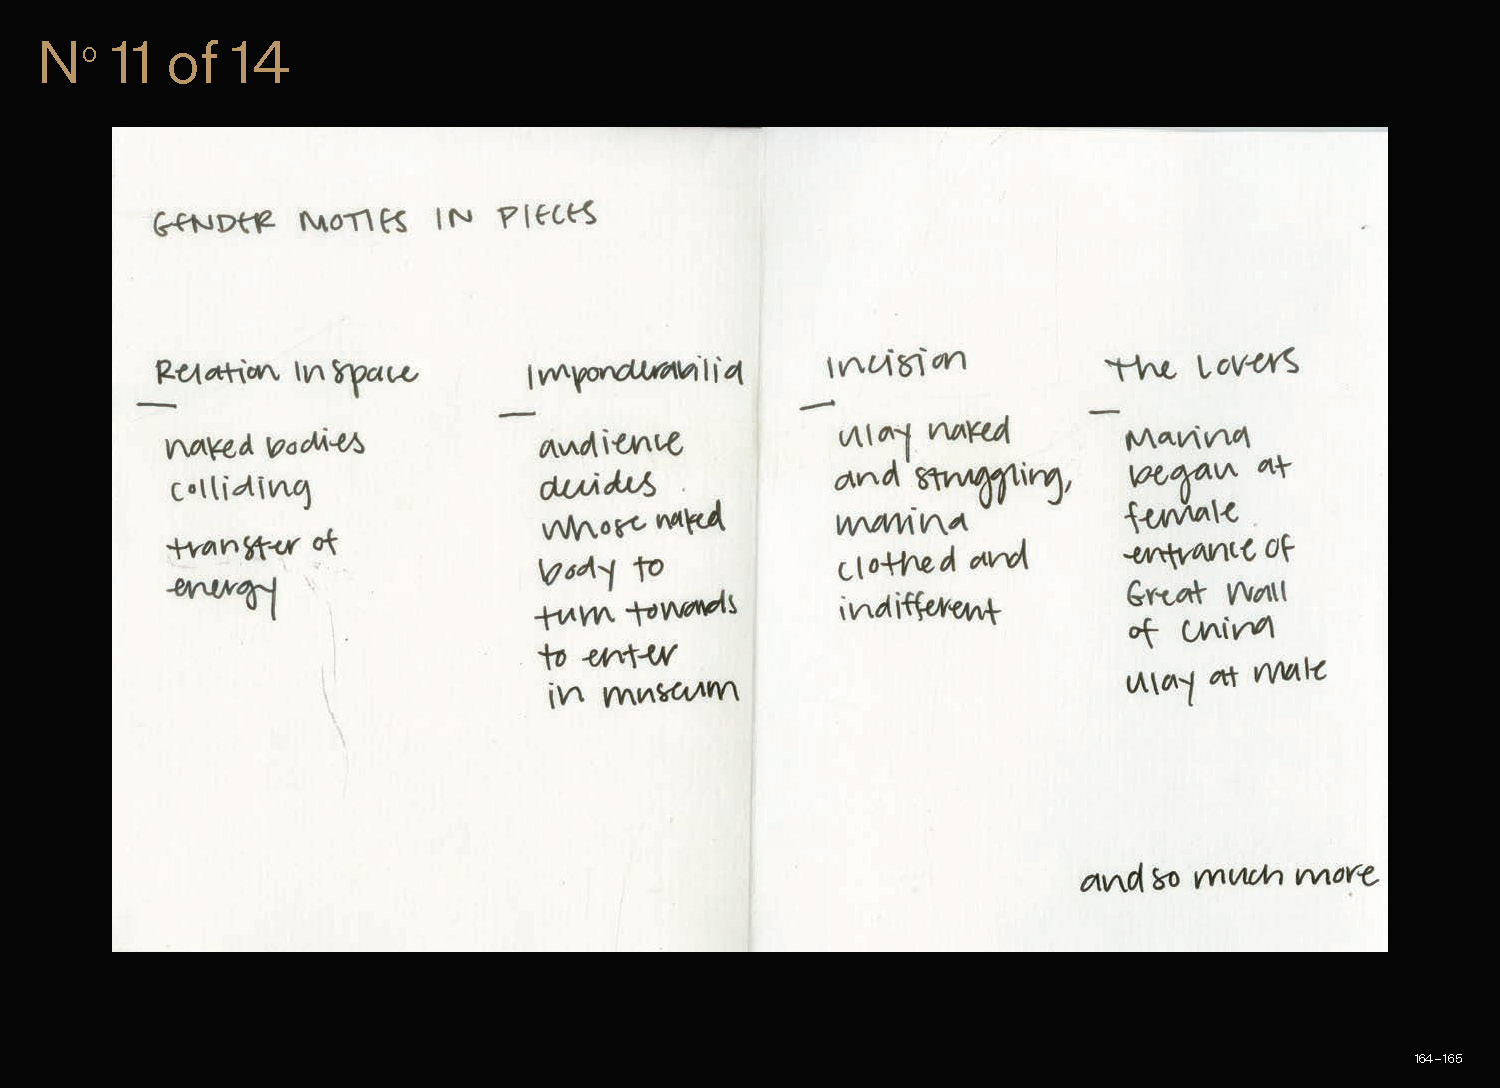 Nº 11 of 14
GENDER MOTIFS IN PIECES
Relation In Space
naked bodies
colliding
transfer of
energy
Imponderabilia
audience
decides
whose naked
body to
turn towards
to enter
in museum
Incision
Ulay naked
and struggling,
marina
clothed and
indifferent
The Lovers
Marina
began at
female
entrance of
Great Wall
of China
Ulay at male
and so much more
164–165